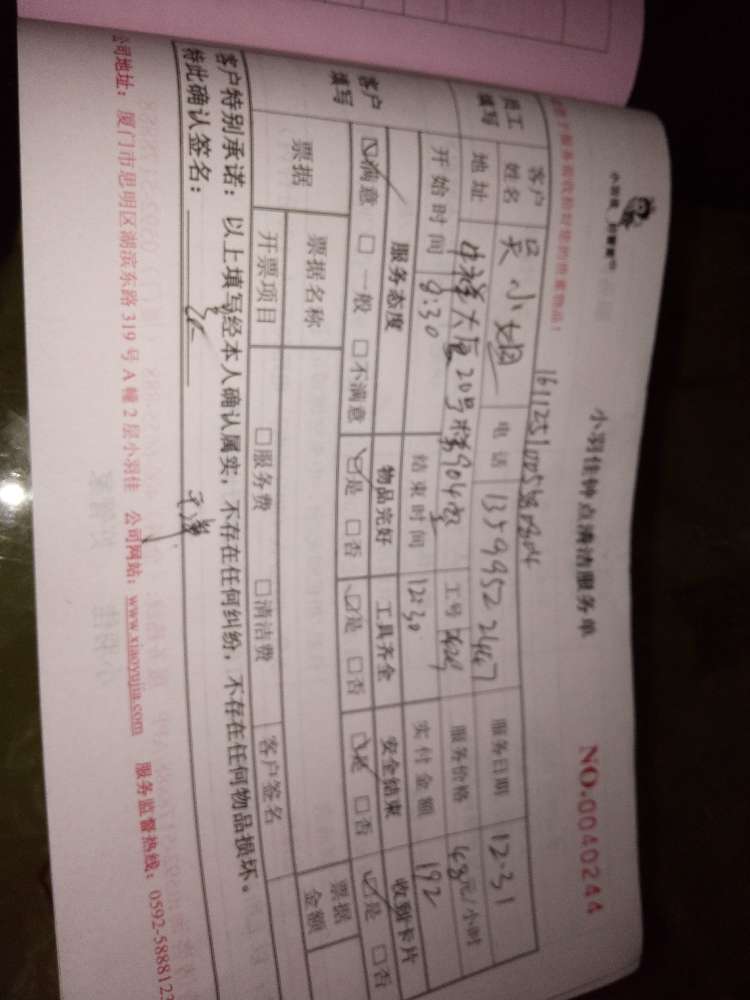 小羽佳
小羽佳钟点清洁服务单
NO.0040244
员工填写
客户姓名 吴小姐 电话 13599522467 服务日期 12.31
地址 中祥大厦20号楼904室 工号 服务价格 48元/小时
开始时间 8:30 结束时间 12:30 实付金额 192
客户填写
服务态度 物品完好 工具齐全 安全结束 收到卡片
☑满意 □一般 □不满意 ☑是 □否 ☑是 □否 ☑是 □否 ☑是 □否
票据 票据名称 票据金额
开票项目 □服务费 □清洁费 客户签名
客户特别承诺：以上填写经本人确认属实，不存在任何纠纷，不存在任何物品损坏。
特此确认签名：
公司地址：厦门市思明区湖滨东路319号A幢2层小羽佳 公司网站：www.xiaoyujia.com 服务监督热线：0592-5888123